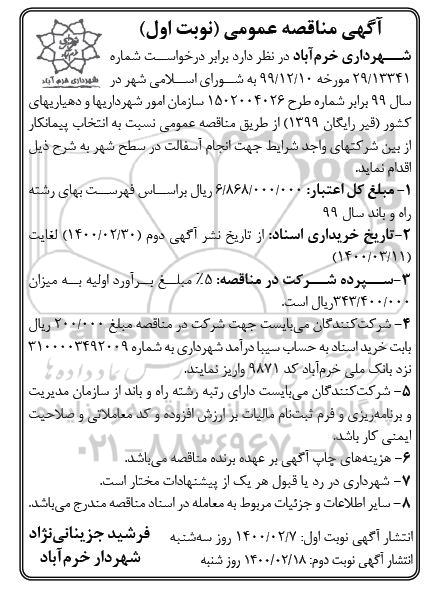 آگهی مناقصه عمومی (نوبت اول)
شهرداری خرم آباد
شهرداری خرم‌آباد در نظر دارد برابر درخواست شماره
۲۹/۱۳۳۴۱ مورخه ۹۹/۱۲/۱۰ به شورای اسلامی شهر در
سال ۹۹ برابر شماره طرح ۱۵۰۲۰۰۴۰۲۶ سازمان امور شهرداریها و دهیاریهای
کشور (قیر رایگان ۱۳۹۹) از طریق مناقصه عمومی نسبت به انتخاب پیمانکار
از بین شرکتهای واجد شرایط جهت انجام آسفالت در سطح شهر به شرح ذیل
اقدام نماید.
۱- مبلغ کل اعتبار: ۶/۸۶۸/۰۰۰/۰۰۰ ریال براساس فهرست بهای رشته
راه و باند سال ۹۹
۲-تاریخ خریداری اسناد: از تاریخ نشر آگهی دوم (۱۴۰۰/۰۲/۳۰) لغایت
(۱۴۰۰/۰۳/۱۱)
۳-سپرده شرکت در مناقصه: ۵٪ مبلغ برآورد اولیه به میزان
۳۴۳/۴۰۰/۰۰۰ریال است.
۴- شرکت‌کنندگان می‌بایست جهت شرکت در مناقصه مبلغ ۲۰۰/۰۰۰ ریال
بابت خرید اسناد به حساب سیبا درآمد شهرداری به شماره ۳۱۰۰۰۰۳۴۹۲۰۰۹
نزد بانک ملی خرم‌آباد کد ۹۸۷۱ واریز نمایند.
۵- شرکت‌کنندگان می‌بایست دارای رتبه رشته راه و باند از سازمان مدیریت
و برنامه‌ریزی و فرم ثبت‌نام مالیات بر ارزش افزوده و کد معاملاتی و صلاحیت
ایمنی کار باشد.
۶- هزینه‌های چاپ آگهی بر عهده برنده مناقصه می‌باشد.
۷- شهرداری در رد یا قبول هر یک از پیشنهادات مختار است.
۸- سایر اطلاعات و جزئیات مربوط به معامله در اسناد مناقصه مندرج می‌باشد.
انتشار آگهی نوبت اول: ۱۴۰۰/۰۲/۷ روز سه‌شنبه
انتشار آگهی نوبت دوم: ۱۴۰۰/۰۲/۱۸ روز شنبه
فرشید جزینانی‌نژاد
شهردار خرم‌آباد
ParsNamadData
۰۲۱-۸۸۳۴۹۶۷۰-۵